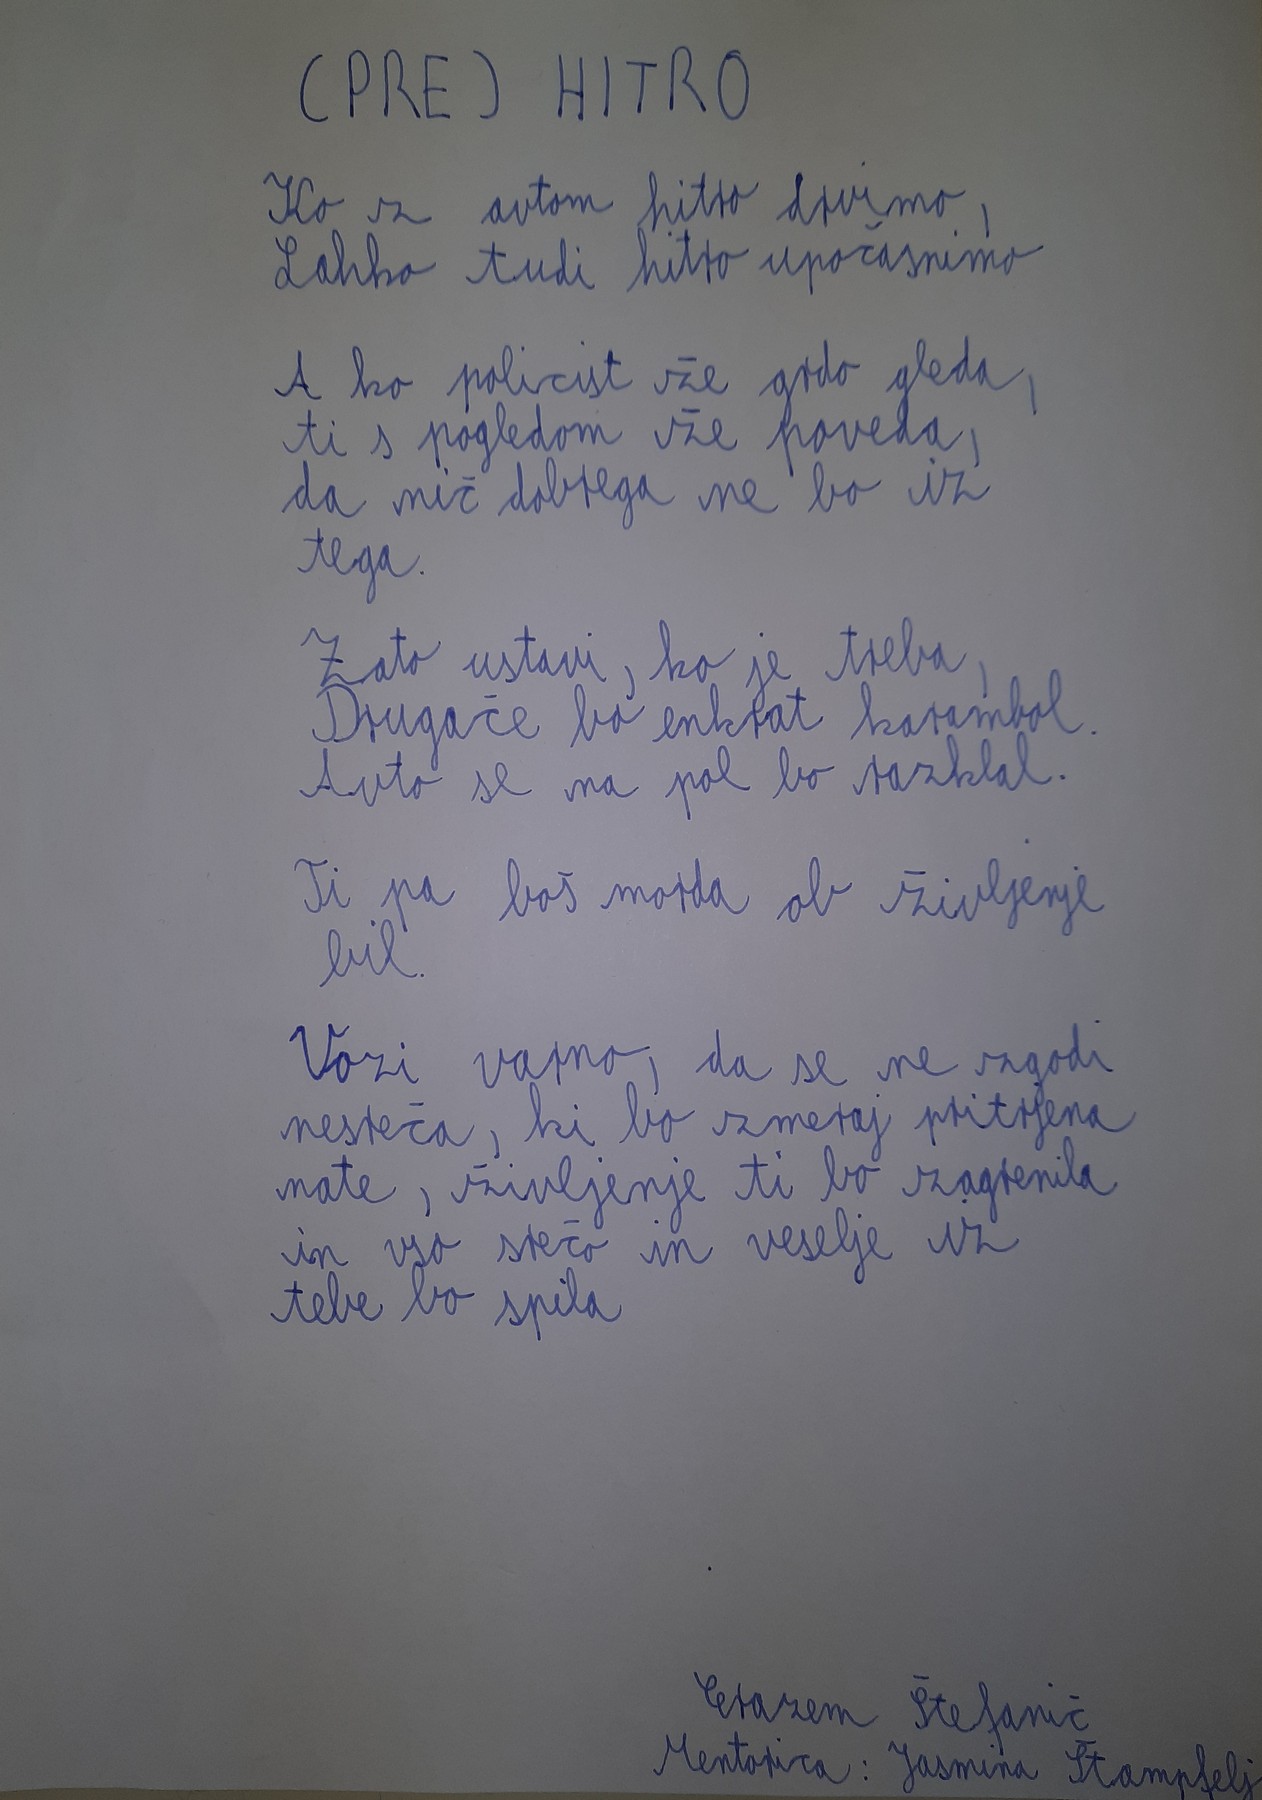 (PRE) HITRO
Ko z avtom hitro drvimo,
Lahko tudi hitro upočasnimo
A ko policist že grdo gleda,
ti s pogledom že poveda,
da nič dobrega ne bo iz
tega.
Zato ustavi, ko je treba,
Drugače bo enkrat karambol.
Avto se na pol bo razklal.
Ti pa boš morda ob življenje
bil.
Vozi varno, da se ne zgodi
nesreča, ki bo zmeraj pritrjena
nate, življenje ti bo zagrenila
in vso srečo in veselje iz
tebe bo spila
Erazem Štefanič
Mentorica: Jasmina Štampfelj